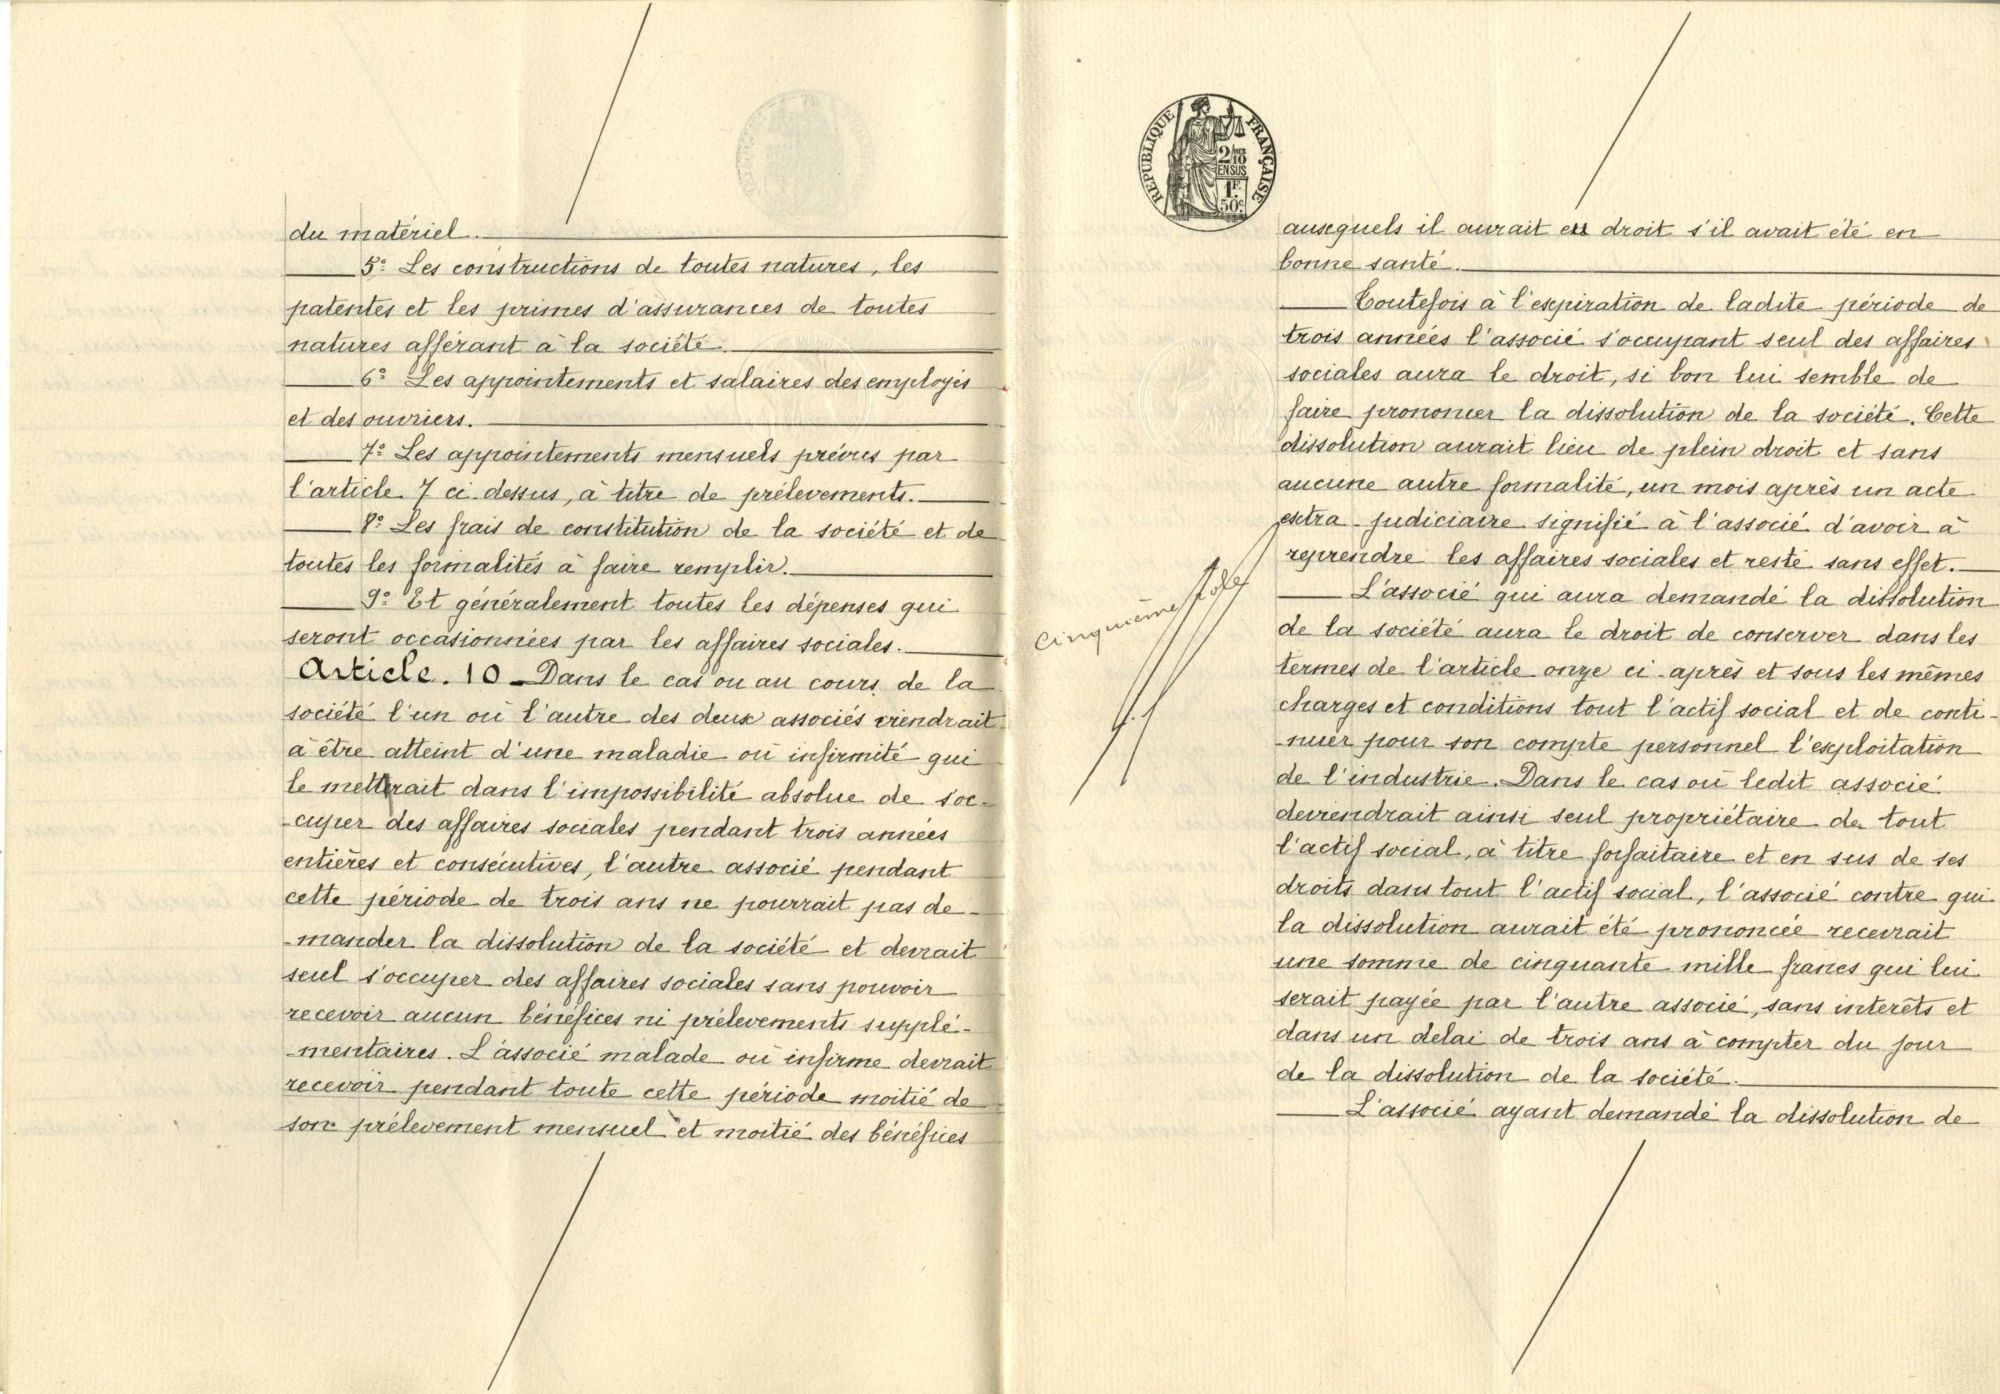 du matériel.
5º Les constructions de toutes natures, les
patentes et les primes d'assurances de toutes
natures afférant à la société.
6º Les appointements et salaires des employés
et des ouvriers.
7º Les appointements mensuels prévus par
l'article 7 ci-dessus, à titre de prélèvements.
8º Les frais de constitution de la société et de
toutes les formalités à faire remplir.
9º Et généralement toutes les dépenses qui
seront occasionnées par les affaires sociales.
Article. 10 _ Dans le cas ou au cours de la
société l'un ou l'autre des deux associés viendrait
à être atteint d'une maladie ou infirmité qui
le mettrait dans l'impossibilité absolue de s'oc-
-cuper des affaires sociales pendant trois années
entières et consécutives, l'autre associé pendant
cette période de trois ans ne pourrait pas de-
-mander la dissolution de la société et devrait
seul s'occuper des affaires sociales sans pouvoir
recevoir aucun bénéfices ni prélevements supplé-
-mentaires. L'associé malade ou infirme devrait
recevoir pendant toute cette période moitié de
son prélevement mensuel et moitié des bénéfices
REPUBLIQUE FRANÇAISE
2/10
EN SUS
1F.
50c
auxquels il aurait eu droit s'il avait été en
bonne santé.
Toutefois à l'expiration de ladite période de
trois années l'associé s'occupant seul des affaires
sociales aura le droit, si bon lui semble de
faire prononcer la dissolution de la société. Cette
dissolution aurait lieu de plein droit et sans
aucune autre formalité, un mois après un acte
extra-judiciaire signifié à l'associé d'avoir à
reprendre les affaires sociales et resté sans effet.
cinquième rôle
L'associé qui aura demandé la dissolution
de la société aura le droit de conserver dans les
termes de l'article onze ci-après et sous les mêmes
charges et conditions tout l'actif social et de conti-
-nuer pour son compte personnel l'exploitation
de l'industrie. Dans le cas où ledit associé
deviendrait ainsi seul propriétaire de tout
l'actif social, à titre forfaitaire et en sus de ses
droits dans tout l'actif social, l'associé contre qui
la dissolution aurait été prononcée recevrait
une somme de cinquante mille francs qui lui
serait payée par l'autre associé, sans interêts et
dans un delai de trois ans à compter du jour
de la dissolution de la société.
L'associé ayant demandé la dissolution de